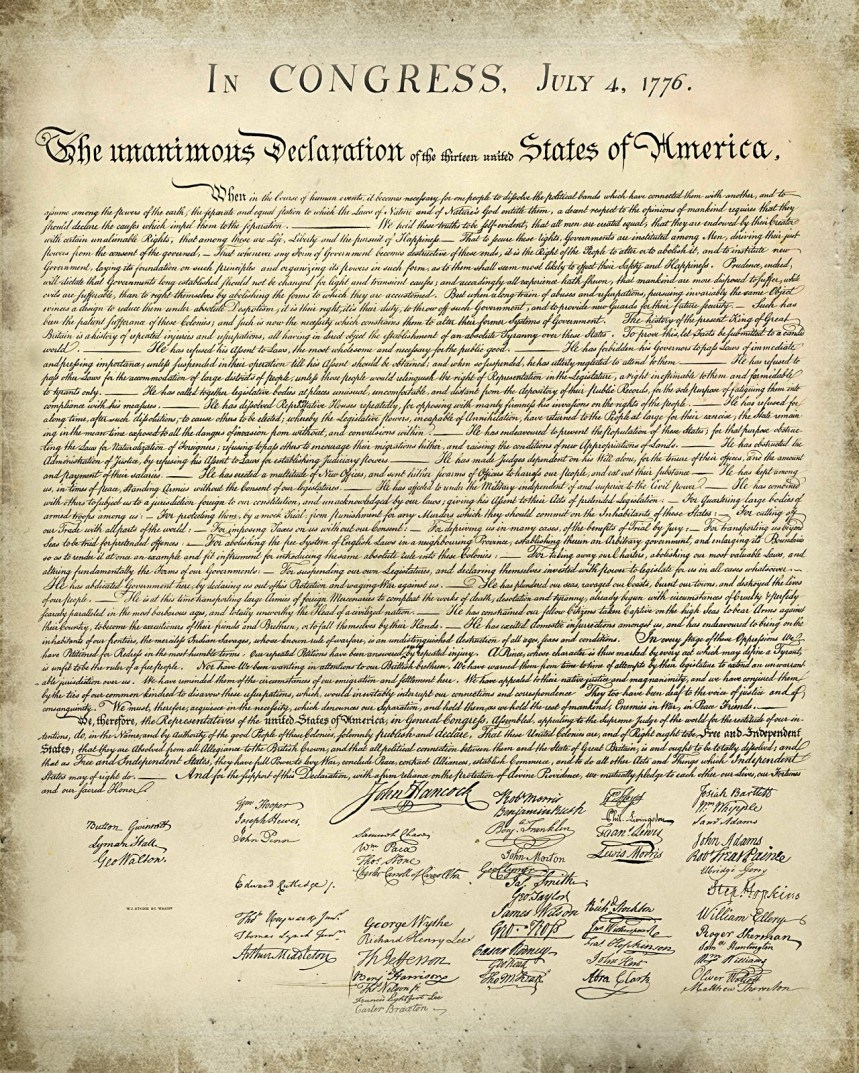 In CONGRESS, July 4, 1776.
The unanimous Declaration of the thirteen united States of America,
When in the Course of human events, it becomes necessary for one people to dissolve the political bands which have connected them with another, and to
assume among the powers of the earth, the separate and equal station to which the Laws of Nature and of Nature's God entitle them, a decent respect to the opinions of mankind requires that they
should declare the causes which impel them to the separation. — We hold these truths to be self-evident, that all men are created equal, that they are endowed by their Creator
with certain unalienable Rights, that among these are Life, Liberty and the pursuit of Happiness — That to secure these rights, Governments are instituted among Men, deriving their just
powers from the consent of the governed, — That whenever any Form of Government becomes destructive of these ends, it is the Right of the People to alter or to abolish it, and to institute new
Government, laying its foundation on such principles and organizing its powers in such form, as to them shall seem most likely to effect their Safety and Happiness. Prudence, indeed,
will dictate that Governments long established should not be changed for light and transient causes; and accordingly all experience hath shewn, that mankind are more disposed to suffer, while
evils are sufferable, than to right themselves by abolishing the forms to which they are accustomed. But when a long train of abuses and usurpations, pursuing invariably the same Object
evinces a design to reduce them under absolute Despotism, it is their right, it is their duty, to throw off such Government, and to provide new Guards for their future security. — Such has
been the patient sufferance of these Colonies; and such is now the necessity which constrains them to alter their former Systems of Government. The history of the present King of Great
Britain is a history of repeated injuries and usurpations, all having in direct object the establishment of an absolute Tyranny over these States. To prove this, let Facts be submitted to a candid
world. — He has refused his Assent to Laws, the most wholesome and necessary for the public good. — He has forbidden his Governors to pass Laws of immediate
and pressing importance, unless suspended in their operation till his Assent should be obtained; and when so suspended, he has utterly neglected to attend to them. — He has refused to
pass other Laws for the accommodation of large districts of people, unless those people would relinquish the right of Representation in the Legislature, a right inestimable to them and formidable
to tyrants only. — He has called together legislative bodies at places unusual, uncomfortable, and distant from the depository of their public Records, for the sole purpose of fatiguing them into
compliance with his measures. — He has dissolved Representative Houses repeatedly, for opposing with manly firmness his invasions on the rights of the people. — He has refused for
a long time, after such dissolutions, to cause others to be elected; whereby the Legislative powers, incapable of Annihilation, have returned to the People at large for their exercise; the State remain-
ing in the mean time exposed to all the dangers of invasion from without, and convulsions within. — He has endeavoured to prevent the population of these States; for that purpose obstruc-
ting the Laws for Naturalization of Foreigners; refusing to pass others to encourage their migrations hither, and raising the conditions of new Appropriations of Lands. — He has obstructed the
Administration of Justice, by refusing his Assent to Laws for establishing Judiciary powers. — He has made Judges dependent on his Will alone, for the tenure of their offices, and the amount
and payment of their salaries. — He has erected a multitude of New Offices, and sent hither swarms of Officers to harrass our people, and eat out their substance. — He has kept among
us, in times of peace, Standing Armies without the Consent of our legislatures. — He has affected to render the Military independent of and superior to the Civil power. — He has combined
with others to subject us to a jurisdiction foreign to our constitution, and unacknowledged by our laws; giving his Assent to their Acts of pretended Legislation: — For Quartering large bodies of
armed troops among us: — For protecting them, by a mock Trial, from punishment for any Murders which they should commit on the Inhabitants of these States: — For cutting off
our Trade with all parts of the world: — For imposing Taxes on us without our Consent: — For depriving us in many cases, of the benefits of Trial by Jury: — For transporting us beyond
Seas to be tried for pretended offences: — For abolishing the free System of English Laws in a neighbouring Province, establishing therein an Arbitrary government, and enlarging its Boundaries
so as to render it at once an example and fit instrument for introducing the same absolute rule into these Colonies: — For taking away our Charters, abolishing our most valuable Laws, and
altering fundamentally the Forms of our Governments: — For suspending our own Legislatures, and declaring themselves invested with power to legislate for us in all cases whatsoever. —
He has abdicated Government here, by declaring us out of his Protection and waging War against us. — He has plundered our seas, ravaged our Coasts, burnt our towns, and destroyed the lives
of our people. — He is at this time transporting large Armies of foreign Mercenaries to compleat the works of death, desolation and tyranny, already begun with circumstances of Cruelty & perfidy
scarcely paralleled in the most barbarous ages, and totally unworthy the Head of a civilized nation. — He has constrained our fellow Citizens taken Captive on the high Seas to bear Arms against
their Country, to become the executioners of their friends and Brethren, or to fall themselves by their Hands. — He has excited domestic insurrections amongst us, and has endeavoured to bring on the
inhabitants of our frontiers, the merciless Indian Savages, whose known rule of warfare, is an undistinguished destruction of all ages, sexes and conditions. In every stage of these Oppressions We
have Petitioned for Redress in the most humble terms: Our repeated Petitions have been answered only by repeated injury. A Prince, whose character is thus marked by every act which may define a Tyrant,
is unfit to be the ruler of a free people. Nor have We been wanting in attentions to our Brittish brethren. We have warned them from time to time of attempts by their legislature to extend an unwarrant-
able jurisdiction over us. We have reminded them of the circumstances of our emigration and settlement here. We have appealed to their native justice and magnanimity, and we have conjured them
by the ties of our common kindred to disavow these usurpations, which, would inevitably interrupt our connections and correspondence. They too have been deaf to the voice of justice and of
consanguinity. We must, therefore, acquiesce in the necessity, which denounces our Separation, and hold them, as we hold the rest of mankind, Enemies in War, in Peace Friends. —
We, therefore, the Representatives of the united States of America, in General Congress, Assembled, appealing to the Supreme Judge of the world for the rectitude of our in-
tentions, do, in the Name, and by Authority of the good People of these Colonies, solemnly publish and declare, That these United Colonies are, and of Right ought to be Free and Independent
States; that they are Absolved from all Allegiance to the British Crown, and that all political connection between them and the State of Great Britain, is and ought to be totally dissolved; and
that as Free and Independent States, they have full Power to levy War, conclude Peace, contract Alliances, establish Commerce, and to do all other Acts and Things which Independent
States may of right do. — And for the support of this Declaration, with a firm reliance on the protection of divine Providence, we mutually pledge to each other our Lives, our Fortunes
and our sacred Honor.
John Hancock
Button Gwinnett
Lyman Hall
Geo Walton.
Wm Hooper
Joseph Hewes,
John Penn
Edward Rutledge /.
Thos Heyward Junr.
Thomas Lynch Junr.
Arthur Middleton
Samuel Chase
Wm Paca
Thos Stone
Charles Carroll of Carrollton
George Wythe
Richard Henry Lee
Th Jefferson
Benj Harrison
Thos Nelson jr.
Francis Lightfoot Lee
Carter Braxton
Robt Morris
Benjamin Rush
Benj. Franklin
John Morton
Geo Clymer
Jas. Smith
Geo. Taylor
James Wilson
Geo. Ross
Caesar Rodney
Geo Read
Tho M:Kean
Wm Floyd
Phil. Livingston
Frans. Lewis
Lewis Morris
Richd. Stockton
Jno Witherspoon
Fras. Hopkinson
John Hart
Abra Clark
Josiah Bartlett
Wm Whipple
Saml Adams
John Adams
Robt Treat Paine
Elbridge Gerry
Step. Hopkins
William Ellery
Roger Sherman
Saml Huntington
Wm Williams
Oliver Wolcott
Matthew Thornton